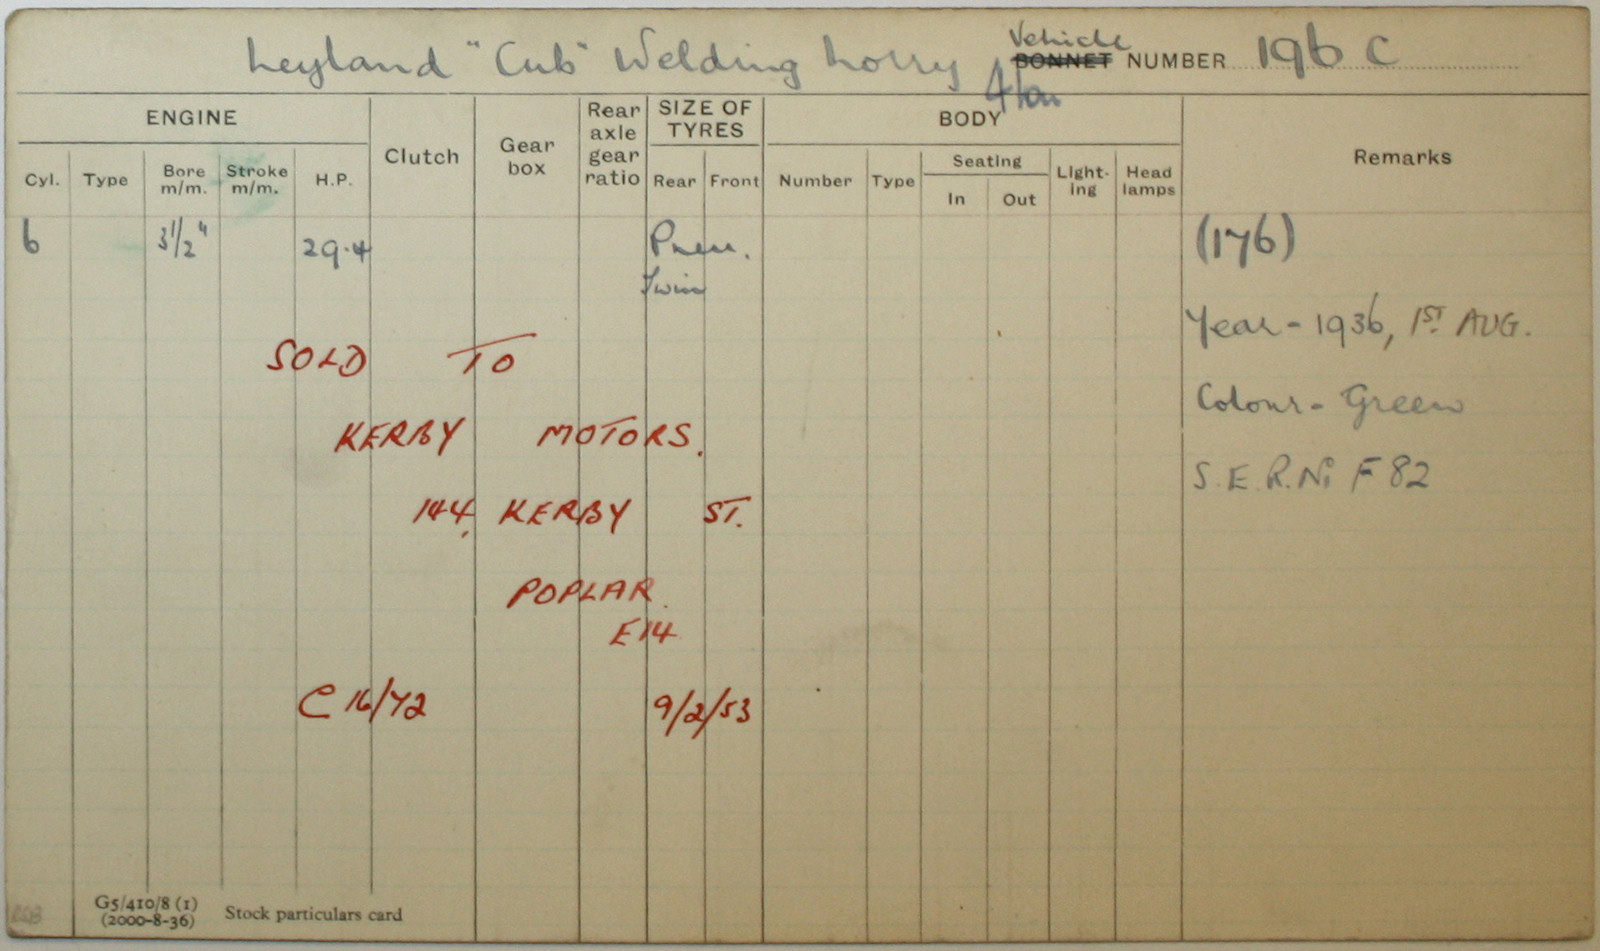 Leyland "Cub" Welding Lorry
4 ton
Vehicle
BONNET NUMBER 196 C
ENGINE
Cyl. Type Bore m/m. Stroke m/m. H.P.
Clutch
Gear box
Rear axle gear ratio
SIZE OF TYRES
Rear Front
BODY
Number Type Seating In Out Light-ing Head lamps
Remarks
6 3 1/2" 29.4 Pneu. (176)
Twin
Year - 1936, 1ST AUG.
SOLD TO
Colour - Green
KERBY MOTORS.
S.E.R.No F 82
144, KERBY ST.
POPLAR.
E14
C 16/72 9/2/53
G5/410/8 (1)
(2000-8-36) Stock particulars card